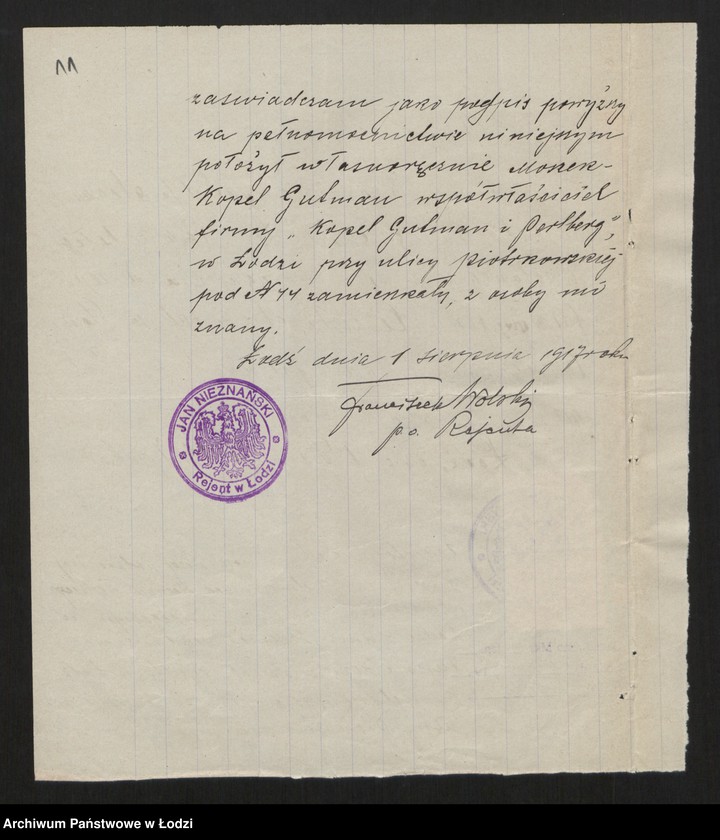 11
zaświadczam jako podpis powyższy
na pełnomocnictwie niniejszym
położył własnoręcznie Moszek-
Kopel Gutman współwłaściciel
firmy „Kopel Gutman i Perlberg",
w Łodzi przy ulicy Piotrkowskiej
pod N 44 zamieszkały, z osoby mi
znany.
Łódź dnia 1 sierpnia 1917 roku
Franciszek Wolski
p.o. Rejenta
JAN NIEZNAŃSKI
Rejent w Łodzi
Archiwum Państwowe w Łodzi